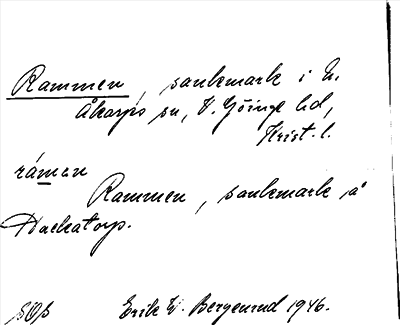 Rammen, sankmark i N.
Åkarps sn, V. Göinge hd,
Krist. l.
rámen
Rammen, sankmark å
Dackatorp.
Erik W. Bergenrud 1946.